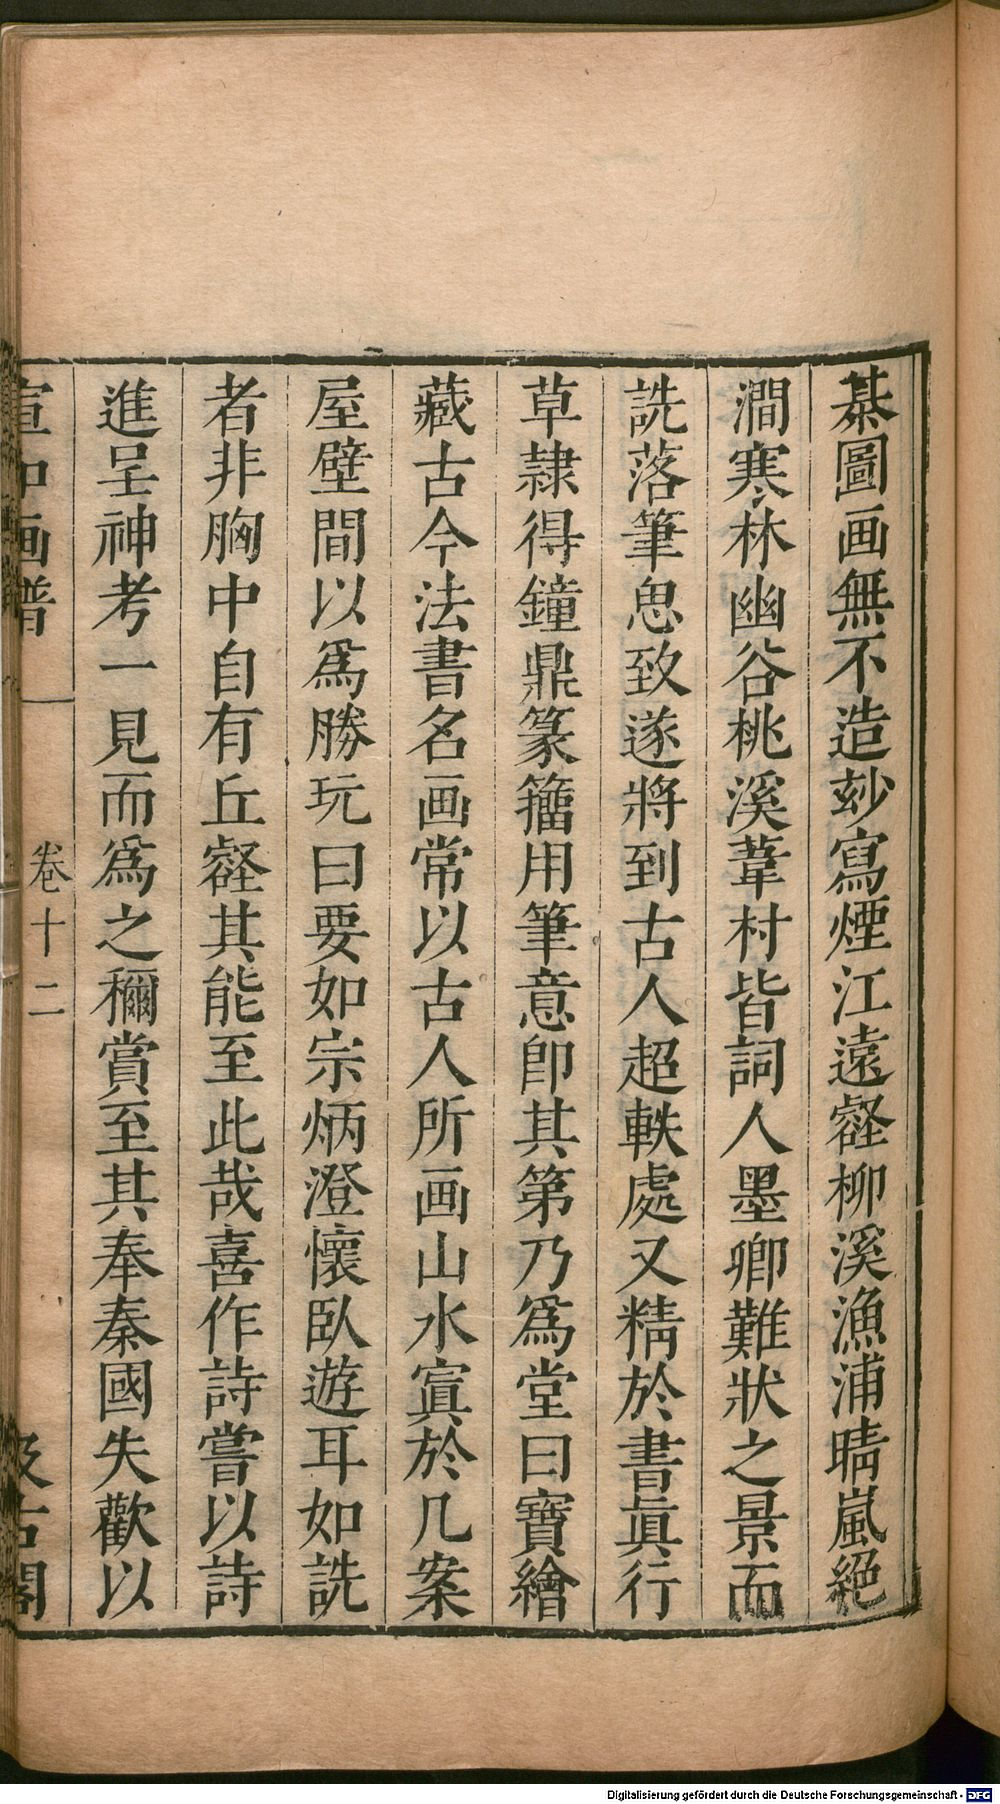 棊圖画無不造玅寫煙江遠壑柳溪漁浦晴嵐絕
澗寒林幽谷桃溪葦村皆詞人墨卿難狀之景而
詵落筆思致遂將到古人超軼處又精於書眞行
草隷得鐘鼎篆籒用筆意卽其第乃爲堂曰寶繪
藏古今法書名画常以古人所画山水寘於几案
屋壁間以爲勝玩曰要如宗炳澄懷臥遊耳如詵
者非胸中自有丘壑其能至此哉喜作詩嘗以詩
進呈神考一見而爲之穪賞至其奉秦國失歡以
宣和画譜
卷十二
汲古閣
Digitalisierung gefördert durch die Deutsche Forschungsgemeinschaft - DFG